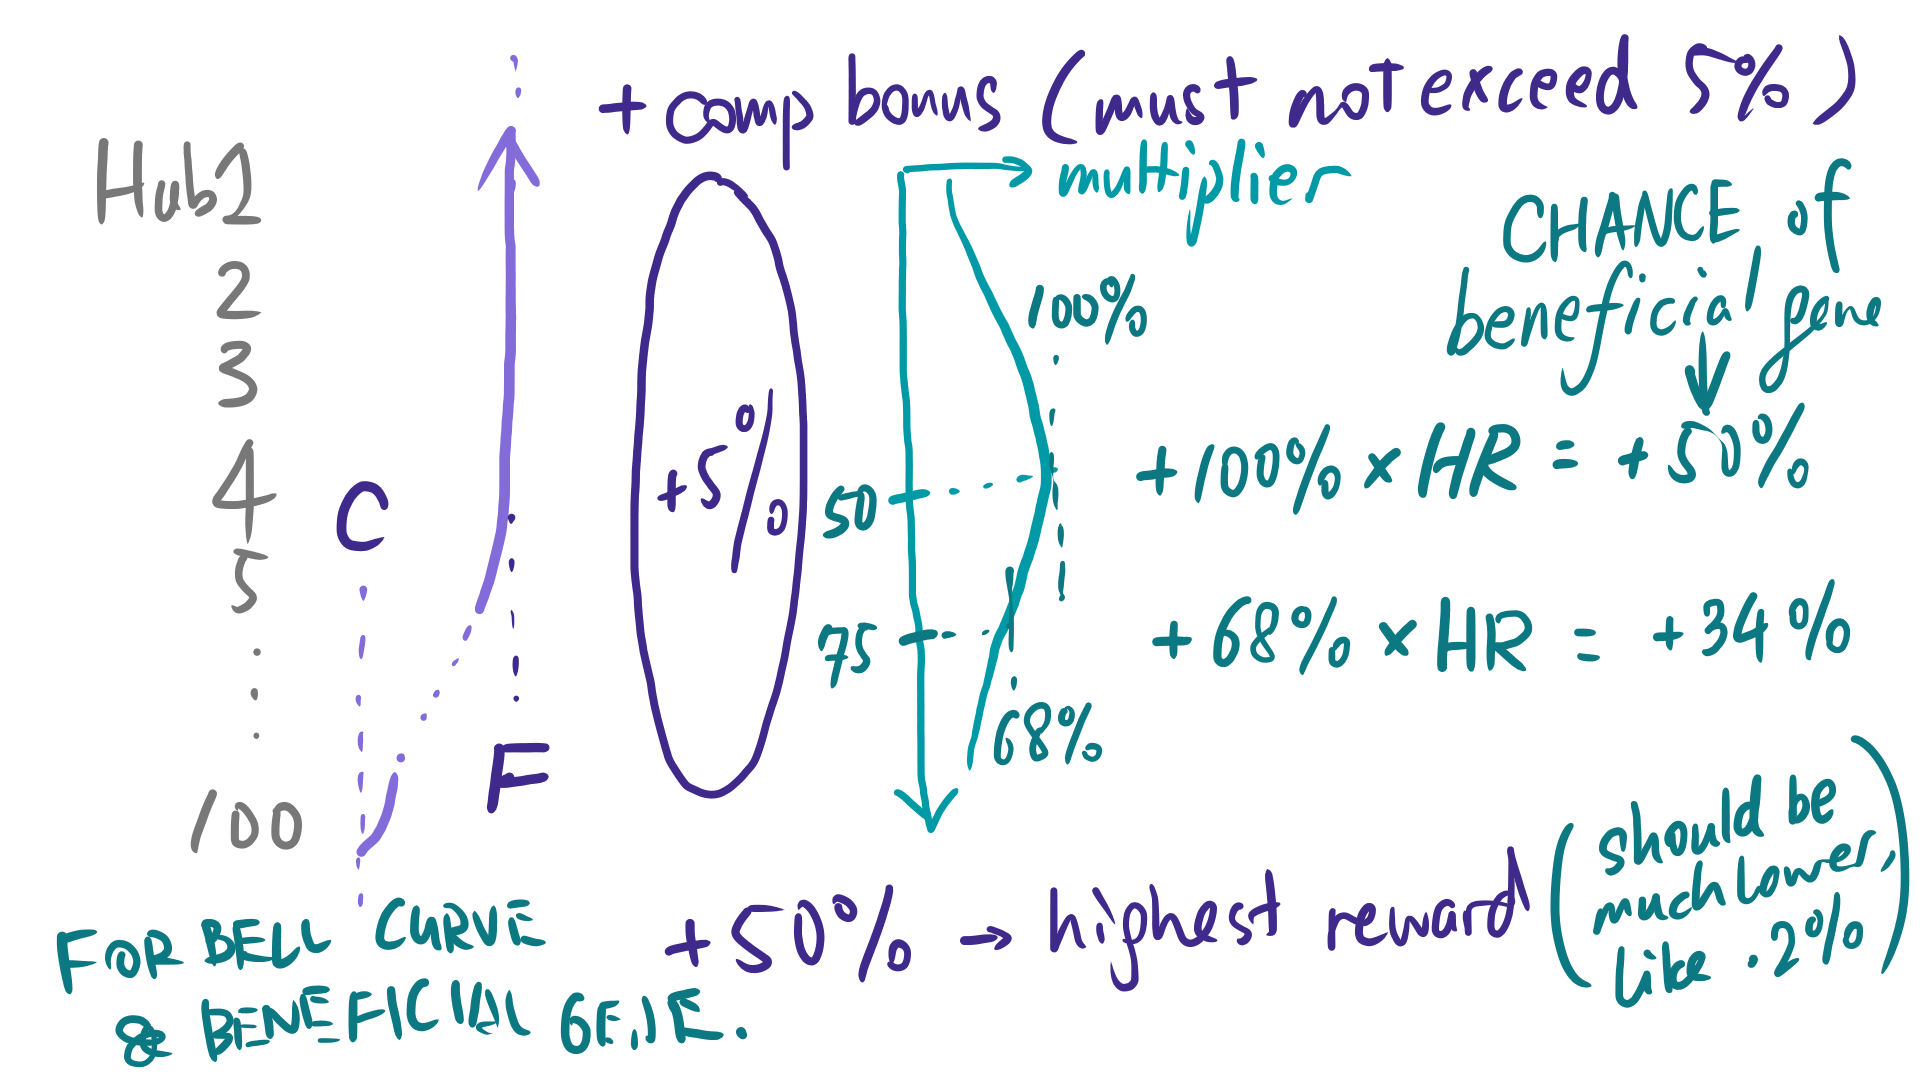 + comp bonus (must not exceed 5%)
multiplier
Hub1
2
3
4
5
100
C
F
+5%
50
75
100%
68%
CHANCE of
beneficial gene
+100% × HR = +50%
+68% × HR = +34%
+50% → highest reward
(should be
much lower,
like .2%)
FOR BELL CURVE
& BENEFICIAL GENE.